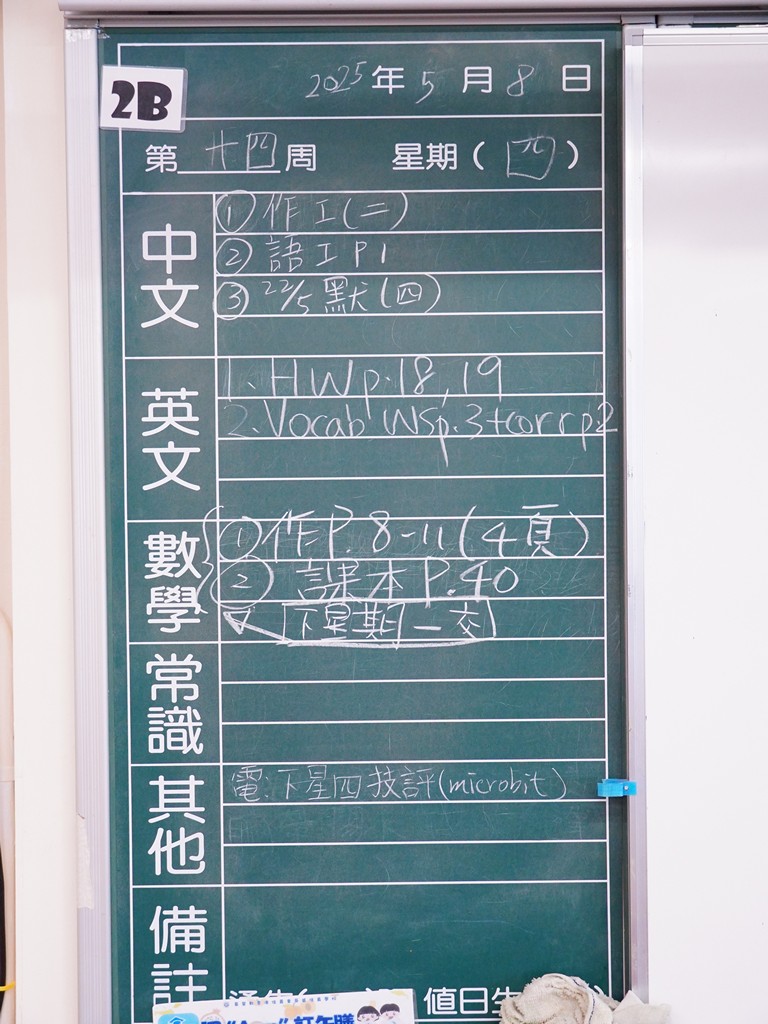 2B
2025年5月8日
第十四周 星期(四)
中文
①作工(二)
②語工P1
③22/5默(四)
英文
1.HWp.18,19
2.Vocab WSp.3+corrp.2
數學
①作P.8-11(4頁)
②課本P.40
下星期一交
常識
其他
電:下星四技評(microbit)
備註
值日生